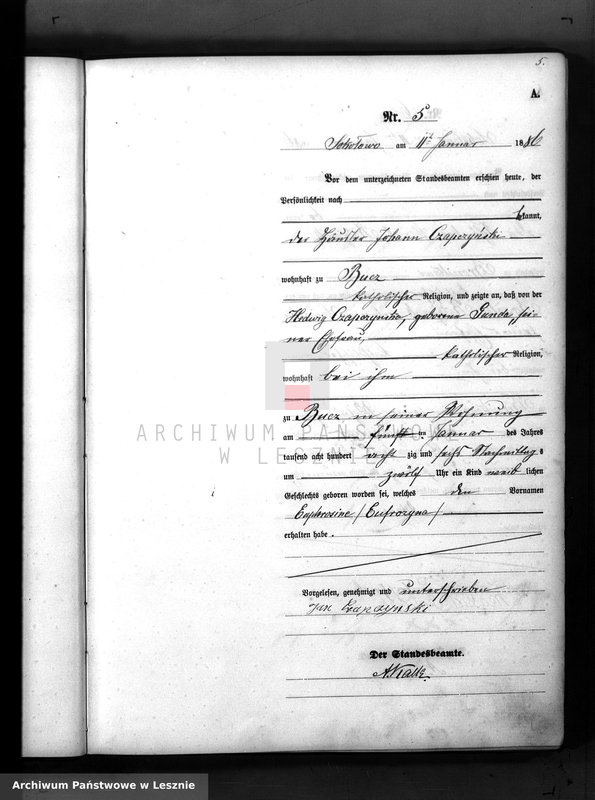 5.
A.
Nr. 5
Sokolowo am 11t Januar 1886
Vor dem unterzeichneten Standesbeamten erschien heute, der
Persönlichkeit nach
bekannt,
der Häusler Johann Czapczyński
wohnhaft zu Bucz
katholischer Religion, und zeigte an, daß von der
Hedwig Czapczynska, geborene Gunda, sei-
ner Ehefrau,
katholischer Religion,
wohnhaft bei ihm
zu Bucz in seiner Wohnung
am fünft en Januar des Jahres
tausend acht hundert acht zig und sechs Nachmittags
um zwölf Uhr ein Kind weib lichen
Geschlechts geboren worden sei, welches den Vornamen
Euphrosine /Eufrozyna/
erhalten habe.
Vorgelesen, genehmigt und unterschrieben
Jan Czapczynski
Der Standesbeamte.
ARCHIWUM PAŃSTWOWE
W LESZNIE
Archiwum Państwowe w Lesznie